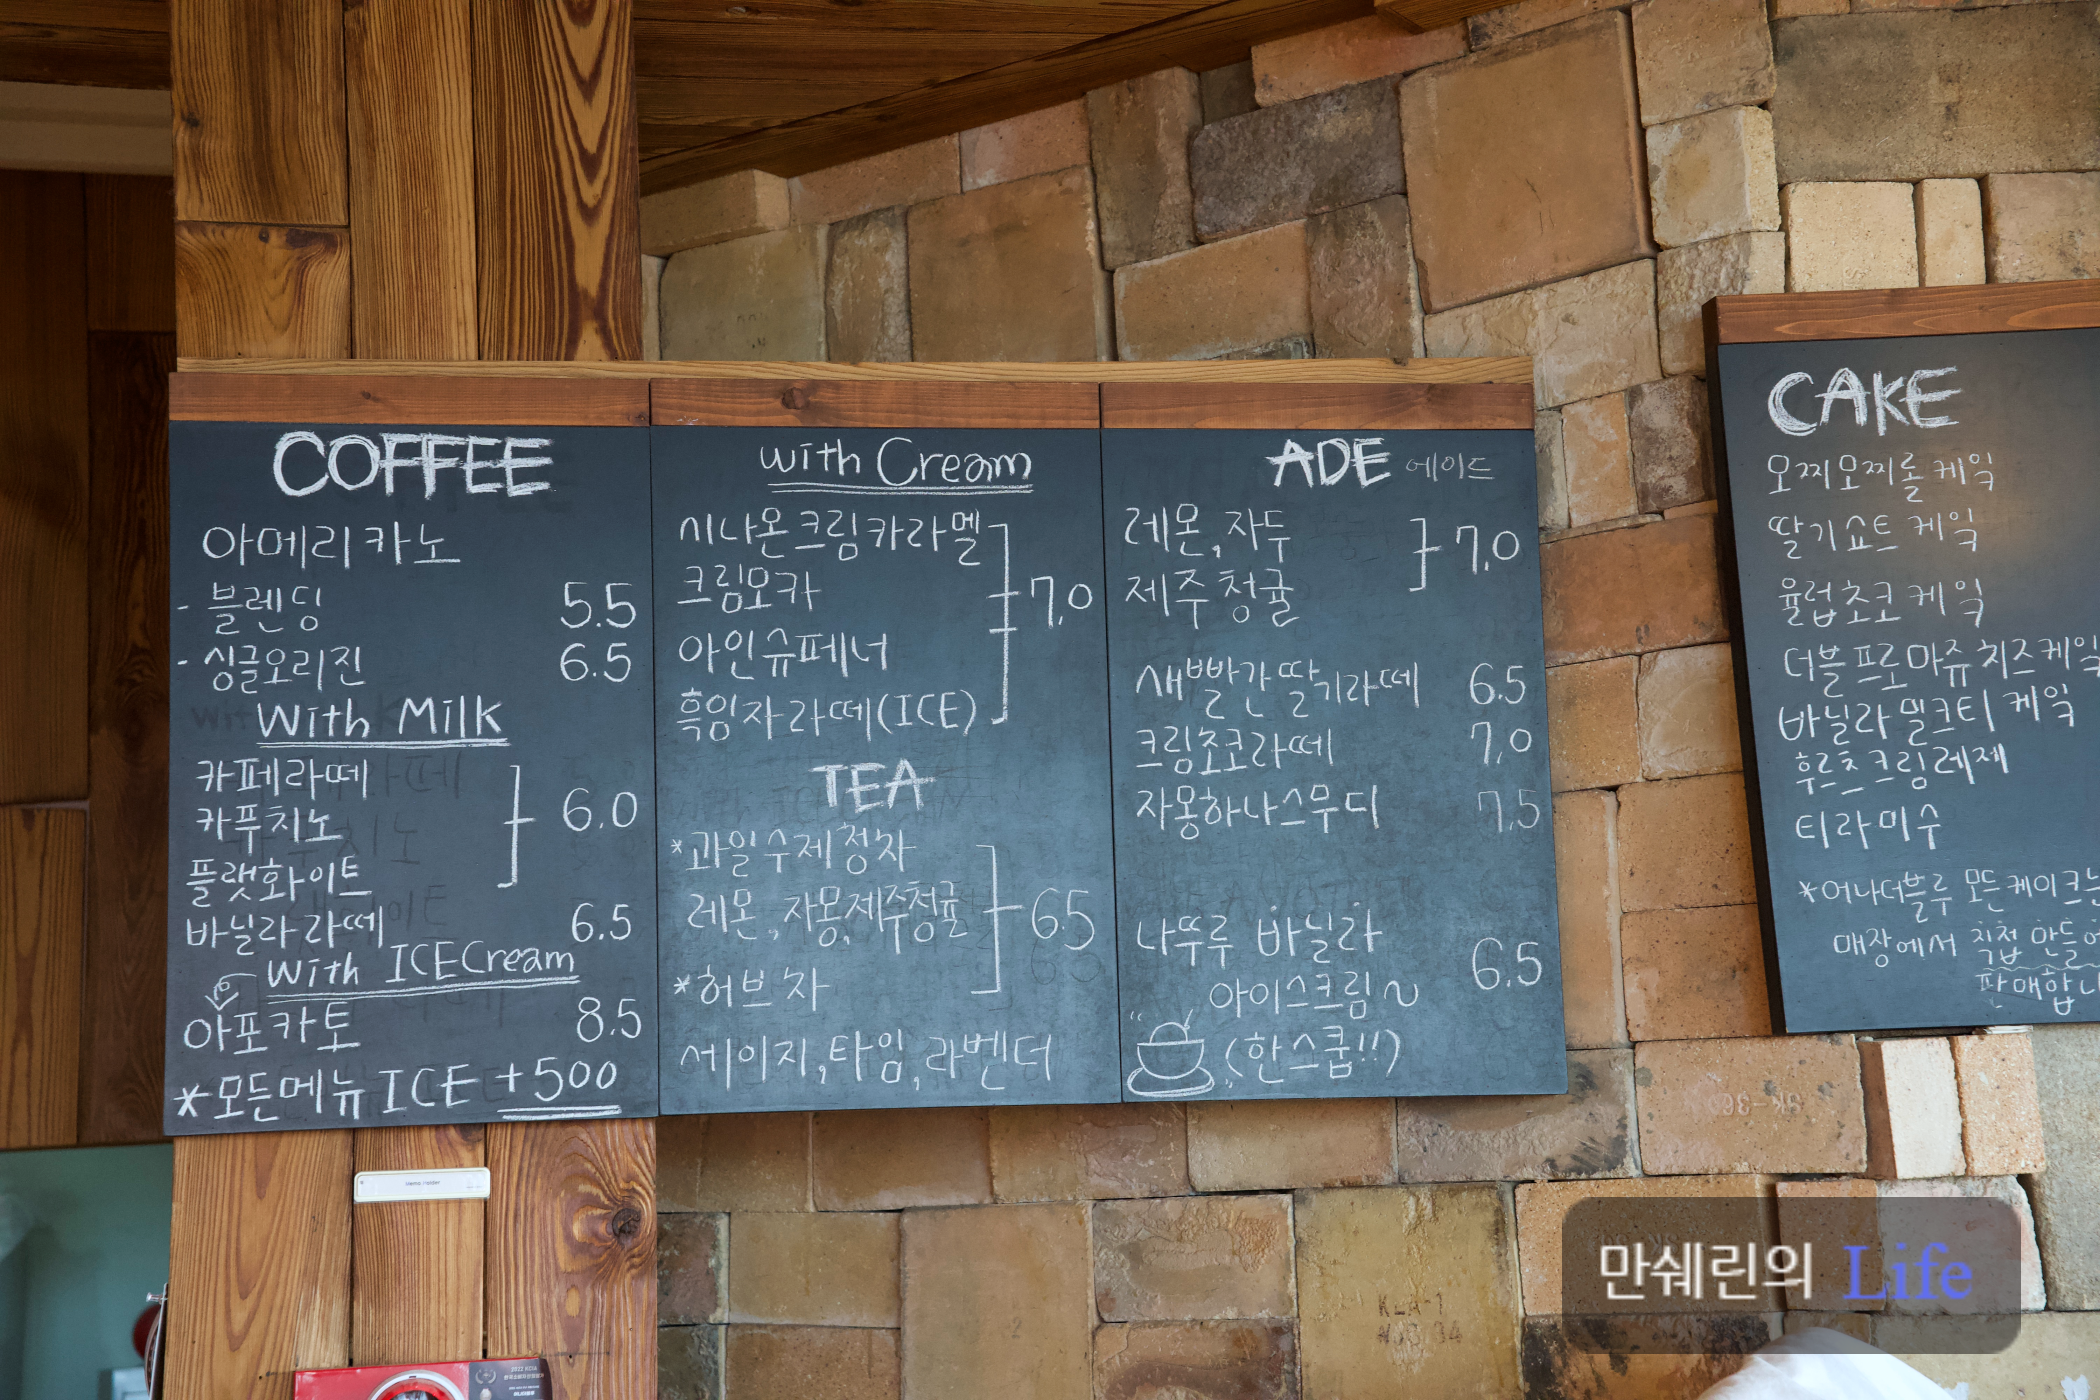 COFFEE
아메리카노
- 블렌딩 5.5
- 싱글오리진 6.5
With Milk
카페라떼
카푸치노 6.0
플랫화이트
바닐라라떼 6.5
With ICECream
아포카토 8.5
*모든메뉴 ICE +500
with Cream
시나몬크림카라멜
크림모카 7.0
아인슈페너
흑임자라떼(ICE)
TEA
*과일수제청차
레몬,자몽,제주청귤 6.5
*허브차
세이지,타임,라벤더
ADE 에이드
레몬,자두 7.0
제주청귤
새빨간딸기라떼 6.5
크림초코라떼 7.0
자몽하나스무디 7.5
나뚜루 바닐라
아이스크림~ 6.5
(한스쿱!!)
CAKE
오찌오찌롤케익
딸기쇼트케익
율럽초코케익
더블프로마쥬치즈케익
바닐라밀크티케익
후르츠크림레제
티라미수
*어나더블루 모든케이크는
매장에서 직접 만들어
판매합니
만쉐린의 Life